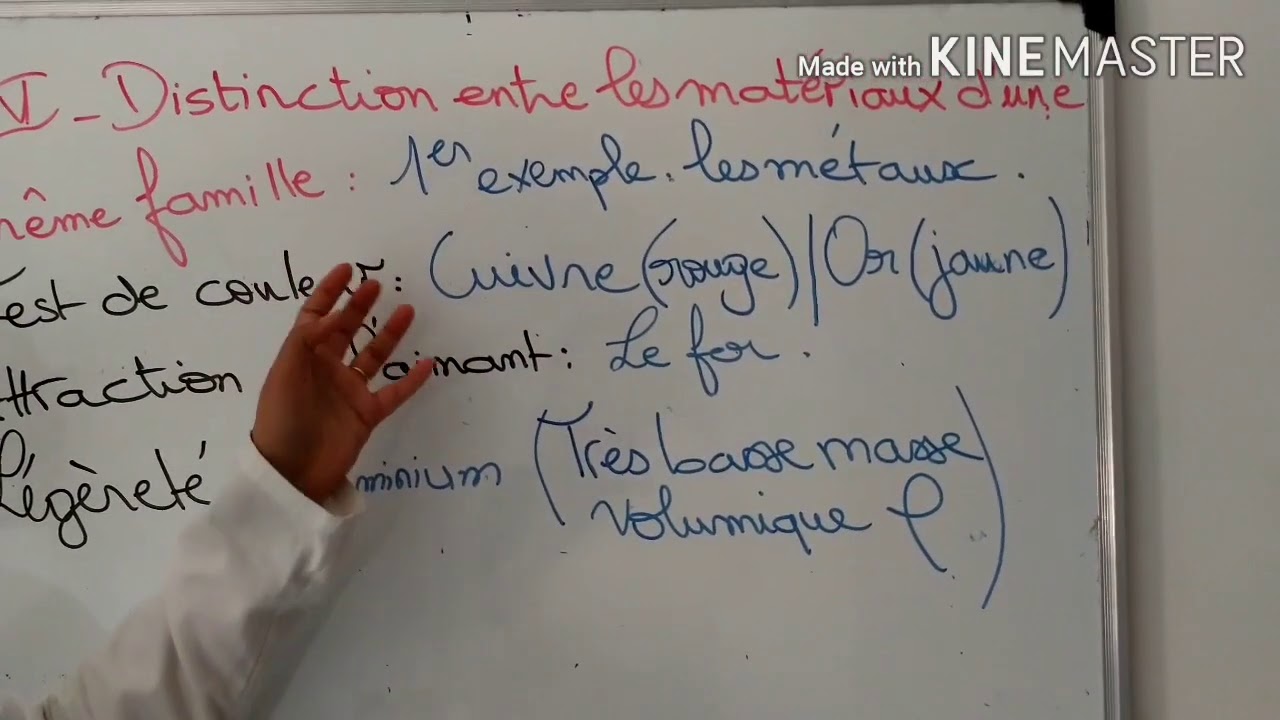 Made with KINEMASTER
VI - Distinction entre les matériaux d'une
même famille : 1er exemple. les métaux.
Test de couleur : Cuivre (rouge) | Or (jaune)
Attraction l'aimant : Le fer.
Légèreté minium (Très basse masse
volumique ρ)